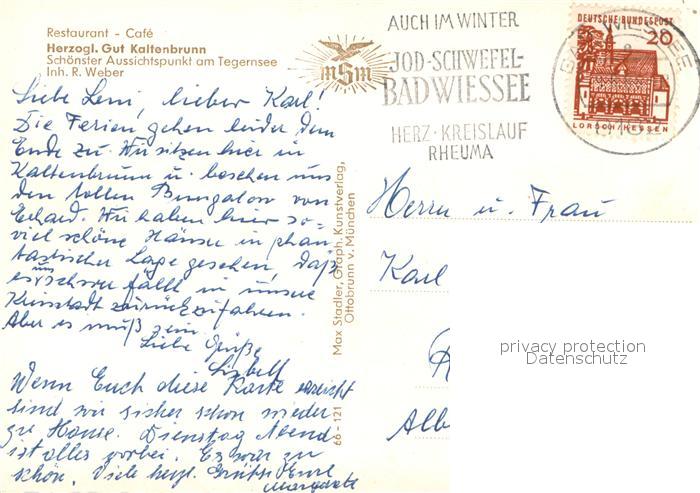 Restaurant - Café
Herzogl. Gut Kaltenbrunn
Schönster Aussichtspunkt am Tegernsee
Inh. R. Weber
mSm
AUCH IM WINTER
JOD-SCHWEFEL-
BAD WIESSEE
HERZ·KREISLAUF
RHEUMA
DEUTSCHE BUNDESPOST
20
LORSCH/HESSEN
BAD WIESSEE
Liebe Leni, lieber Karl!
Die Ferien gehen leider dem
Ende zu. Wir sitzen hier in
Kaltenbrunn u. besehen uns
den tollen Bungalow von
Erhard. Wir haben hier so-
viel schöne Häuser in phan-
tastischer Lage gesehen, daß
es uns schwer fällt in unsere
Kleinstadt zurückzufahren.
Aber es muß sein.
Liebe Grüße
Wenn Euch diese Karte erreicht
sind wir sicher schon wieder
zu Hause. Dienstag Abend
ist alles vorbei. Es war zu
schön. Viele herzl. Grüße Eure
Margarete
Max Stadler, Graph. Kunstverlag,
Ottobrunn v. München
66 - 121
Herrn u. Frau
Karl
Alb
privacy protection
Datenschutz